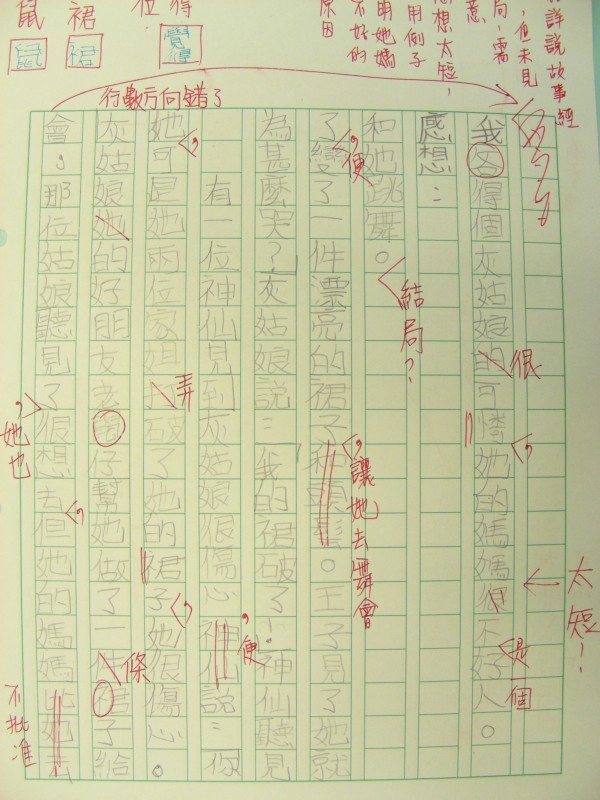 詳說故事經
，但未見
局，需
意
想太短，
用例子
明她媽
不好的
原因
得
位
裙
鼠
覺得
裙
鼠
行數方向錯了
會，那位姑娘聽見了很想去但她的媽媽比她去
灰姑娘她的好朋友老仔幫她做了一件裙子給
她可是她兩位家姐打破了她的裙子她很傷心。
有一位神仙見到灰姑娘很傷心神仙說：你
為甚麼哭？灰姑娘說：「我的裙破了！神仙聽見
了變了一件漂亮的裙子和頭髮。王子見了她就
和她跳舞。
感想：
我各得個灰姑娘的可憐她的媽媽很不好人。
，她也
不批准
，
條
，
弄
，
，便
，便
，讓她去舞會
結局？
很
，
是一個
太短！